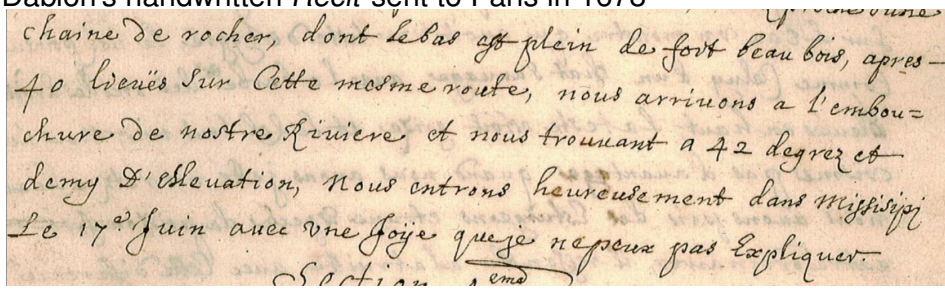 Dablon's handwritten Récit sent to Paris in 1678
proche d'une
chaine de rocher, dont le bas est plein de fort beau bois, apres
40 lieuës sur Cette mesme route, nous arriuons a l'embou=
chure de nostre Riuiere et nous trouuant a 42 degrez et
demy D'esleuation, nous entrons heureusement dans Missisipi
Le 17e Juin auec vne Joÿe que je ne peux pas Expliquer.
Section